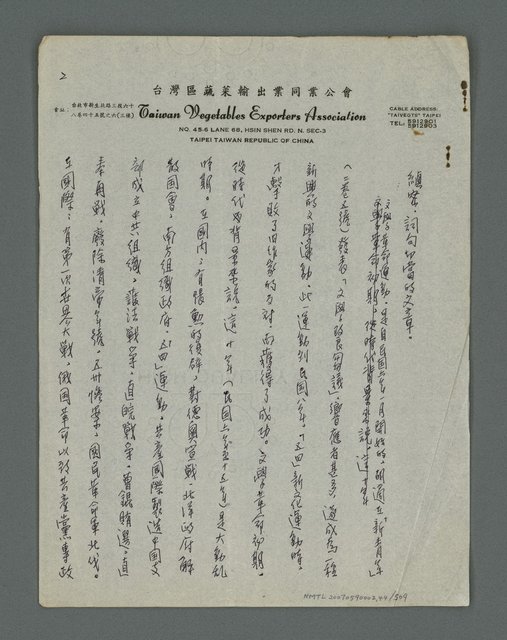 2
台灣區蔬菜輸出業同業公會
Taiwan Vegetables Exporters Association
會址：台北市新生北路三段六十
八巷四十五號之六(三樓)
NO. 45-6 LANE 68, HSIN SHEN RD. N. SEC-3
TAIPEI TAIWAN REPUBLIC OF CHINA
CABLE ADDRESS:
"TAIVEGTS" TAIPEI
TEL: 5912901
5912903
詞句切當的文章。
文學革命運動，是自民國六年一月開始的，胡適在「新青年」
文學革命初期，從時代背景來說，這十年
(二卷五號)發表「文學改良芻議」，響應者甚多，造成為一種
新興的文學運動。此一運動到民國八年，「五四」新文化運動時，
才擊敗了旧作家的反對，而獲得了成功。文學革命初期，
從時代的背景來說，這十年(民國六年至十五年)是大動亂
時期。在國內：有張勳的復辟，對德奧宣戰，北洋政府解
散國會，南方組織政府，五四運動，共產國際製造中國支
部成立中共組織，護法戰爭，直皖戰爭，曹錕賄選，直
奉再戰，廢除清帝年號，五卅慘案，國民革命軍北伐。
在國際：有第一次世界大戰，俄國革命以致共產黨專政
NMTL 20070590002,44/509